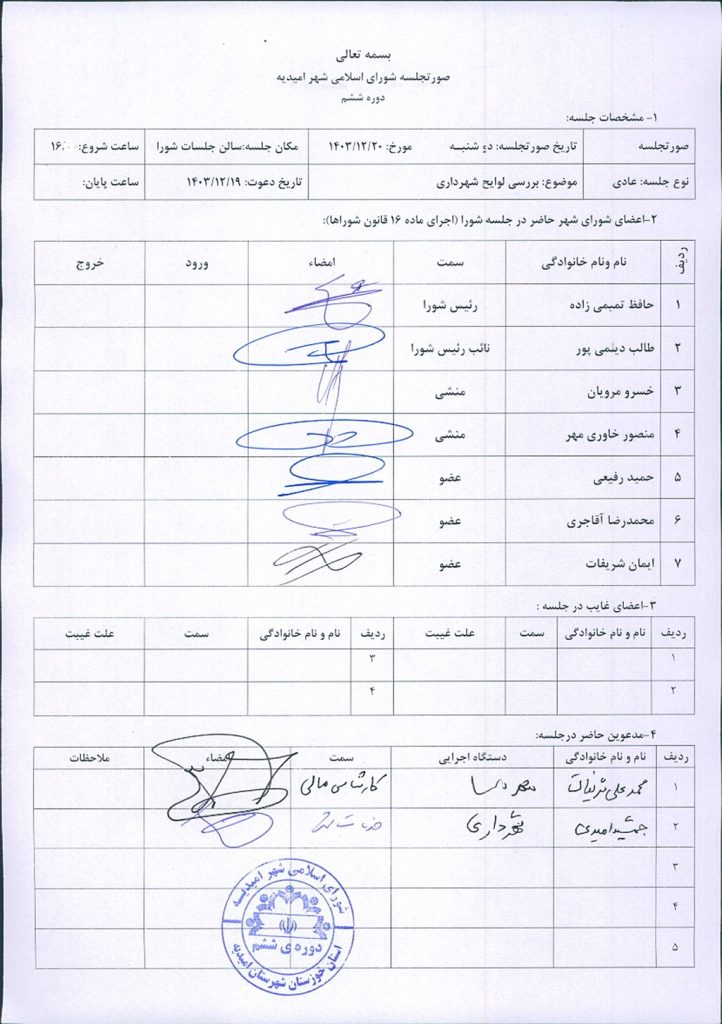 بسمه تعالی
صورتجلسه شورای اسلامی شهر امیدیه
دوره ششم
۱- مشخصات جلسه:
صورتجلسه تاریخ صورتجلسه: دو شنبـه مورخ: ۱۴۰۳/۱۲/۲۰ مکان جلسه:سالن جلسات شورا ساعت شروع: ۱۶:۰۰
نوع جلسه: عادی موضوع: بررسی لوایح شهرداری تاریخ دعوت: ۱۴۰۳/۱۲/۱۹ ساعت پایان:
۲-اعضای شورای شهر حاضر در جلسه شورا (اجرای ماده ۱۶ قانون شوراها):
ردیف نام ونام خانوادگی سمت امضاء ورود خروج
۱ حافظ تمیمی زاده رئیس شورا
۲ طالب دیلمی پور نائب رئیس شورا
۳ خسرو مرویان منشی
۴ منصور خاوری مهر منشی
۵ حمید رفیعی عضو
۶ محمدرضا آقاجری عضو
۷ ایمان شریفات عضو
۳-اعضای غایب در جلسه :
ردیف نام و نام خانوادگی سمت علت غیبت ردیف نام و نام خانوادگی سمت علت غیبت
۱ ۳
۲ ۴
۴-مدعوین حاضر درجلسه:
ردیف نام و نام خانوادگی دستگاه اجرایی سمت امضاء ملاحظات
۱ محمد علی کارشناس مالی
۲ جمشید امیدی شهرداری
۳
۴
۵
شورای اسلامی شهر امیدیـه
دوره ی ششم
استان خوزستان شهرستان امیدیه